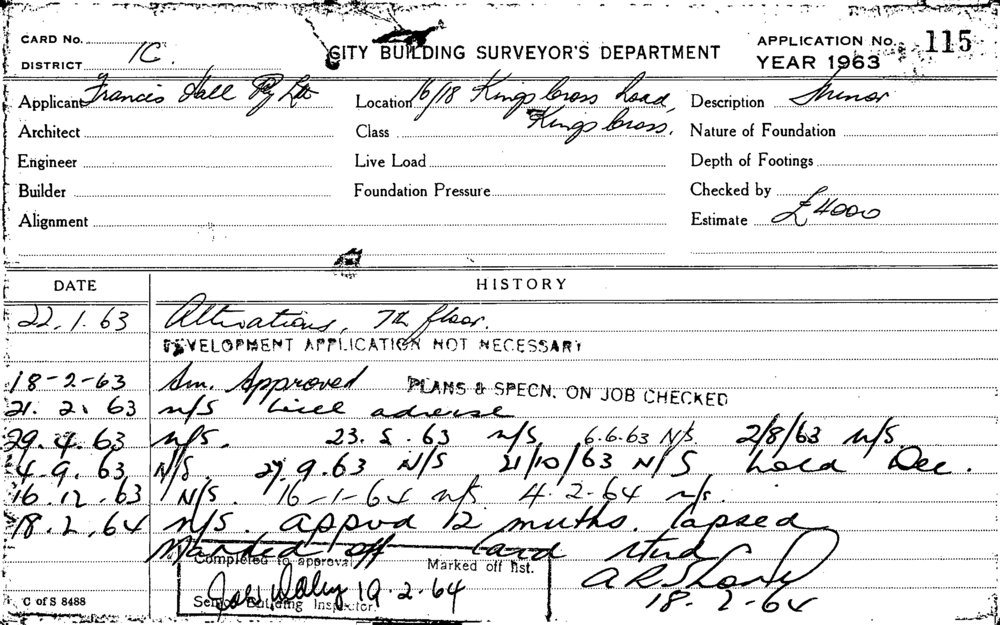 CARD No.
DISTRICT 1C.
CITY BUILDING SURVEYOR'S DEPARTMENT
APPLICATION No. 115
YEAR 1963
Applicant Francis Hall Pty Ltd
Location 16/18 Kings Cross Road,
Kings Cross.
Description Minor
Architect
Class
Nature of Foundation
Engineer
Live Load
Depth of Footings
Builder
Foundation Pressure
Checked by
Alignment
Estimate £4000
DATE HISTORY
22.1.63 Alterations, 7th floor.
DEVELOPMENT APPLICATION NOT NECESSARY
18-2-63 Approved PLANS & SPECN. ON JOB CHECKED
21.2.63 n/S will advise
29.4.63 n/S. 23.5.63 n/S 6.6.63 N/S 2/8/63 n/S
4.9.63 N/S 27.9.63 N/S 21/10/63 N/S Hold Dec.
16.12.63 N/S. 16-1-64 n/s 4.2.64 n/s.
18.2.64 n/S. appvd 12 mnths. lapsed
Marked off Card
Completed to approval Marked off list.
19.2.64
Senior Building Inspector.
18-2-64
C of S 8488